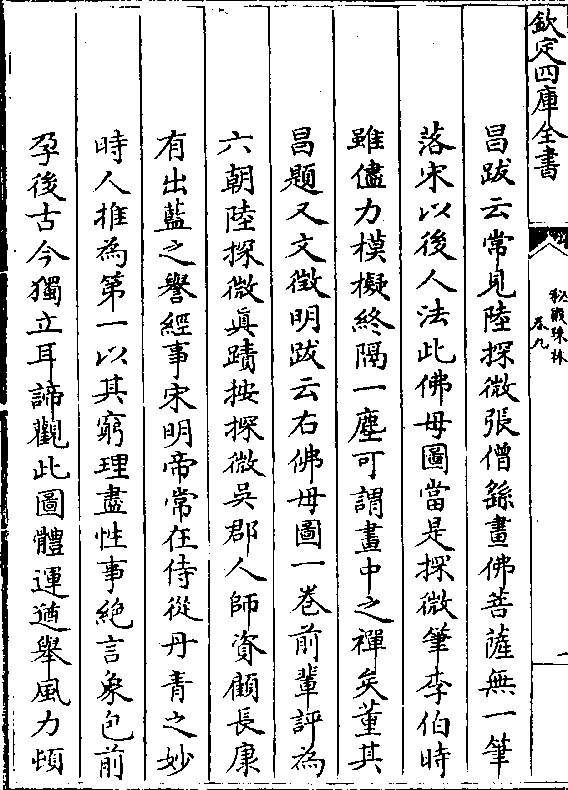 欽定四庫全書
秘殿珠林
卷九
昌跋云常見陸探微張僧繇畫佛菩薩無一筆
落宋以後人法此佛母圖當是探微筆李伯時
雖儘力模擬終隔一塵可謂畫中之禪矣董其
昌題又文徵明跋云右佛母圖一卷前輩評為
六朝陸探微眞蹟按探微吳郡人師資顧長康
有出藍之譽經事宋明帝常在侍從丹青之妙
時人推為第一以其窮理盡性事絶言象包前
孕後古今獨立耳諦觀此圖體運遒舉風力頓